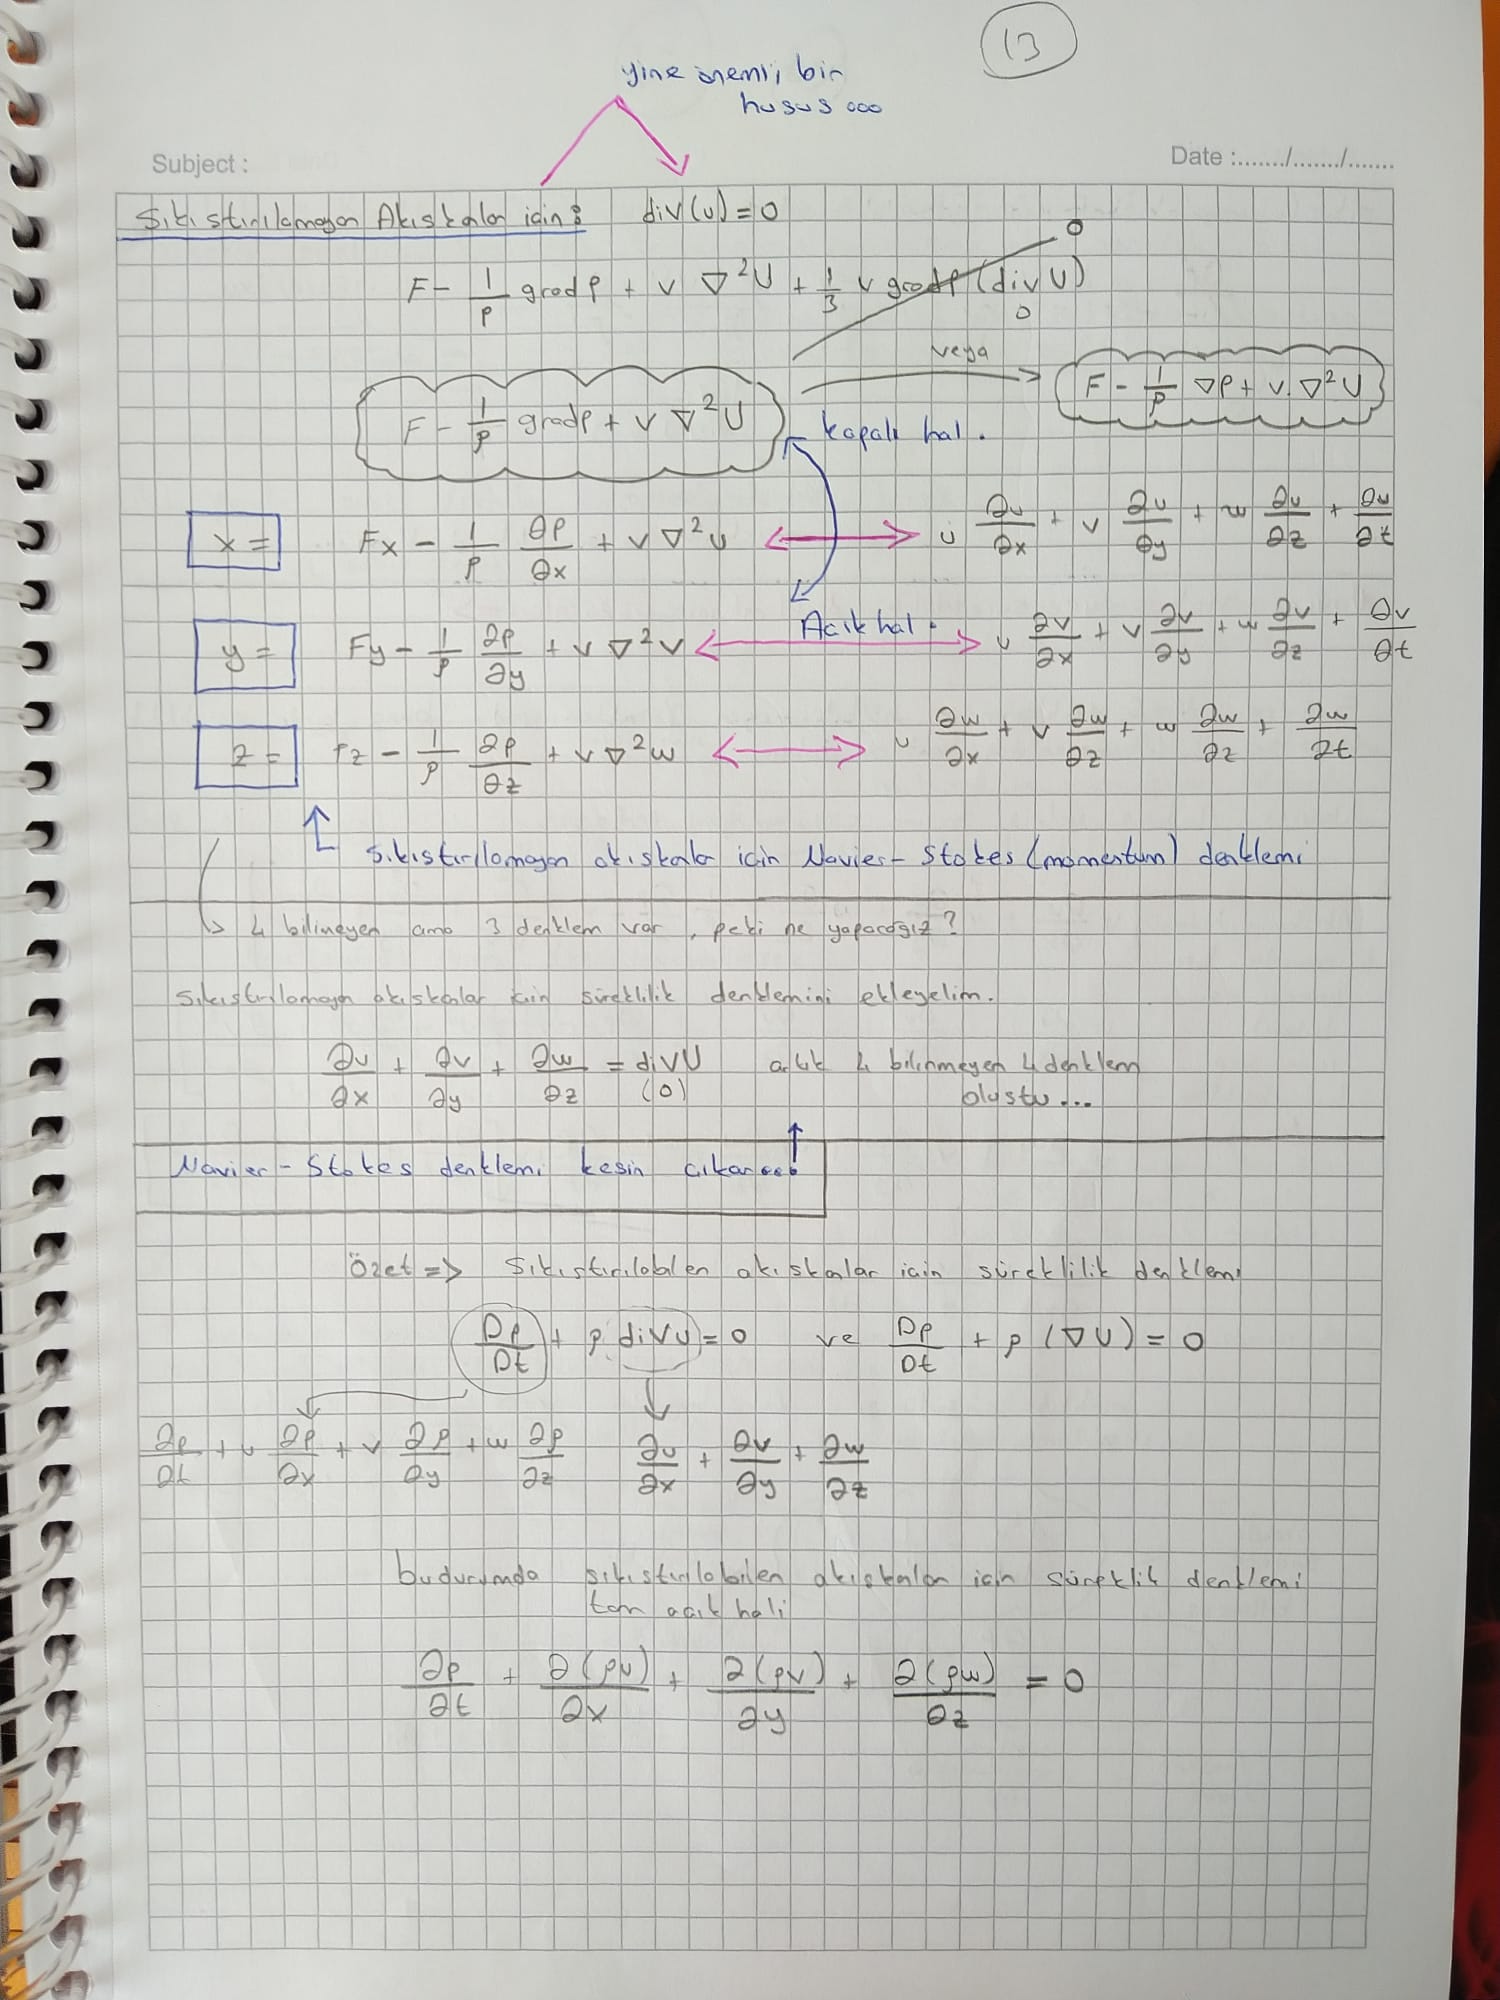 13
yine önemli bir
husus ooo
Subject :
Date :......./......./.......
Sıkıştırılamayan Akışkanlar için: div(u) = 0
F - 1/ρ gradρ + ν ∇²U + 1/3 ν gradρ (div U) 0
0
veya
F - 1/ρ gradρ + ν ∇²U
F - 1/ρ ∇ρ + ν.∇²U
kapalı hal.
x = Fx - 1/ρ ∂ρ/∂x + ν∇²u u ∂u/∂x + v ∂u/∂y + w ∂u/∂z + ∂u/∂t
Acık hal.
y = Fy - 1/ρ ∂ρ/∂y + ν∇²v u ∂v/∂x + v ∂v/∂y + w ∂v/∂z + ∂v/∂t
z = Fz - 1/ρ ∂ρ/∂z + ν∇²w u ∂w/∂x + v ∂w/∂z + w ∂w/∂z + ∂w/∂t
Sıkıstırılamayan akıskanlar icin Navier-Stokes (momentum) denklemi
4 bilineyen ama 3 denklem var, peki ne yapacagız?
Sıkıstırılamayan akıskanlar icin süreklilik denklemini ekleyelim.
∂u/∂x + ∂v/∂y + ∂w/∂z = divU (0) artık 4 bilinmeyen 4 denklem
olustu...
Navier-Stokes denklemi kesin cıkar ooo!
Özet => Sıkıstırılabilen akıskanlar icin süreklilik denklemi
Dρ/Dt + ρ divU = 0 ve Dρ/Dt + ρ (∇U) = 0
∂ρ/∂t + u ∂ρ/∂x + v ∂ρ/∂y + w ∂ρ/∂z ∂u/∂x + ∂v/∂y + ∂w/∂z
bu durumda sıkıstırılabilen akıskanlar icin süreklik denklemi
tam acık hali
∂ρ/∂t + ∂(ρu)/∂x + ∂(ρv)/∂y + ∂(ρw)/∂z = 0